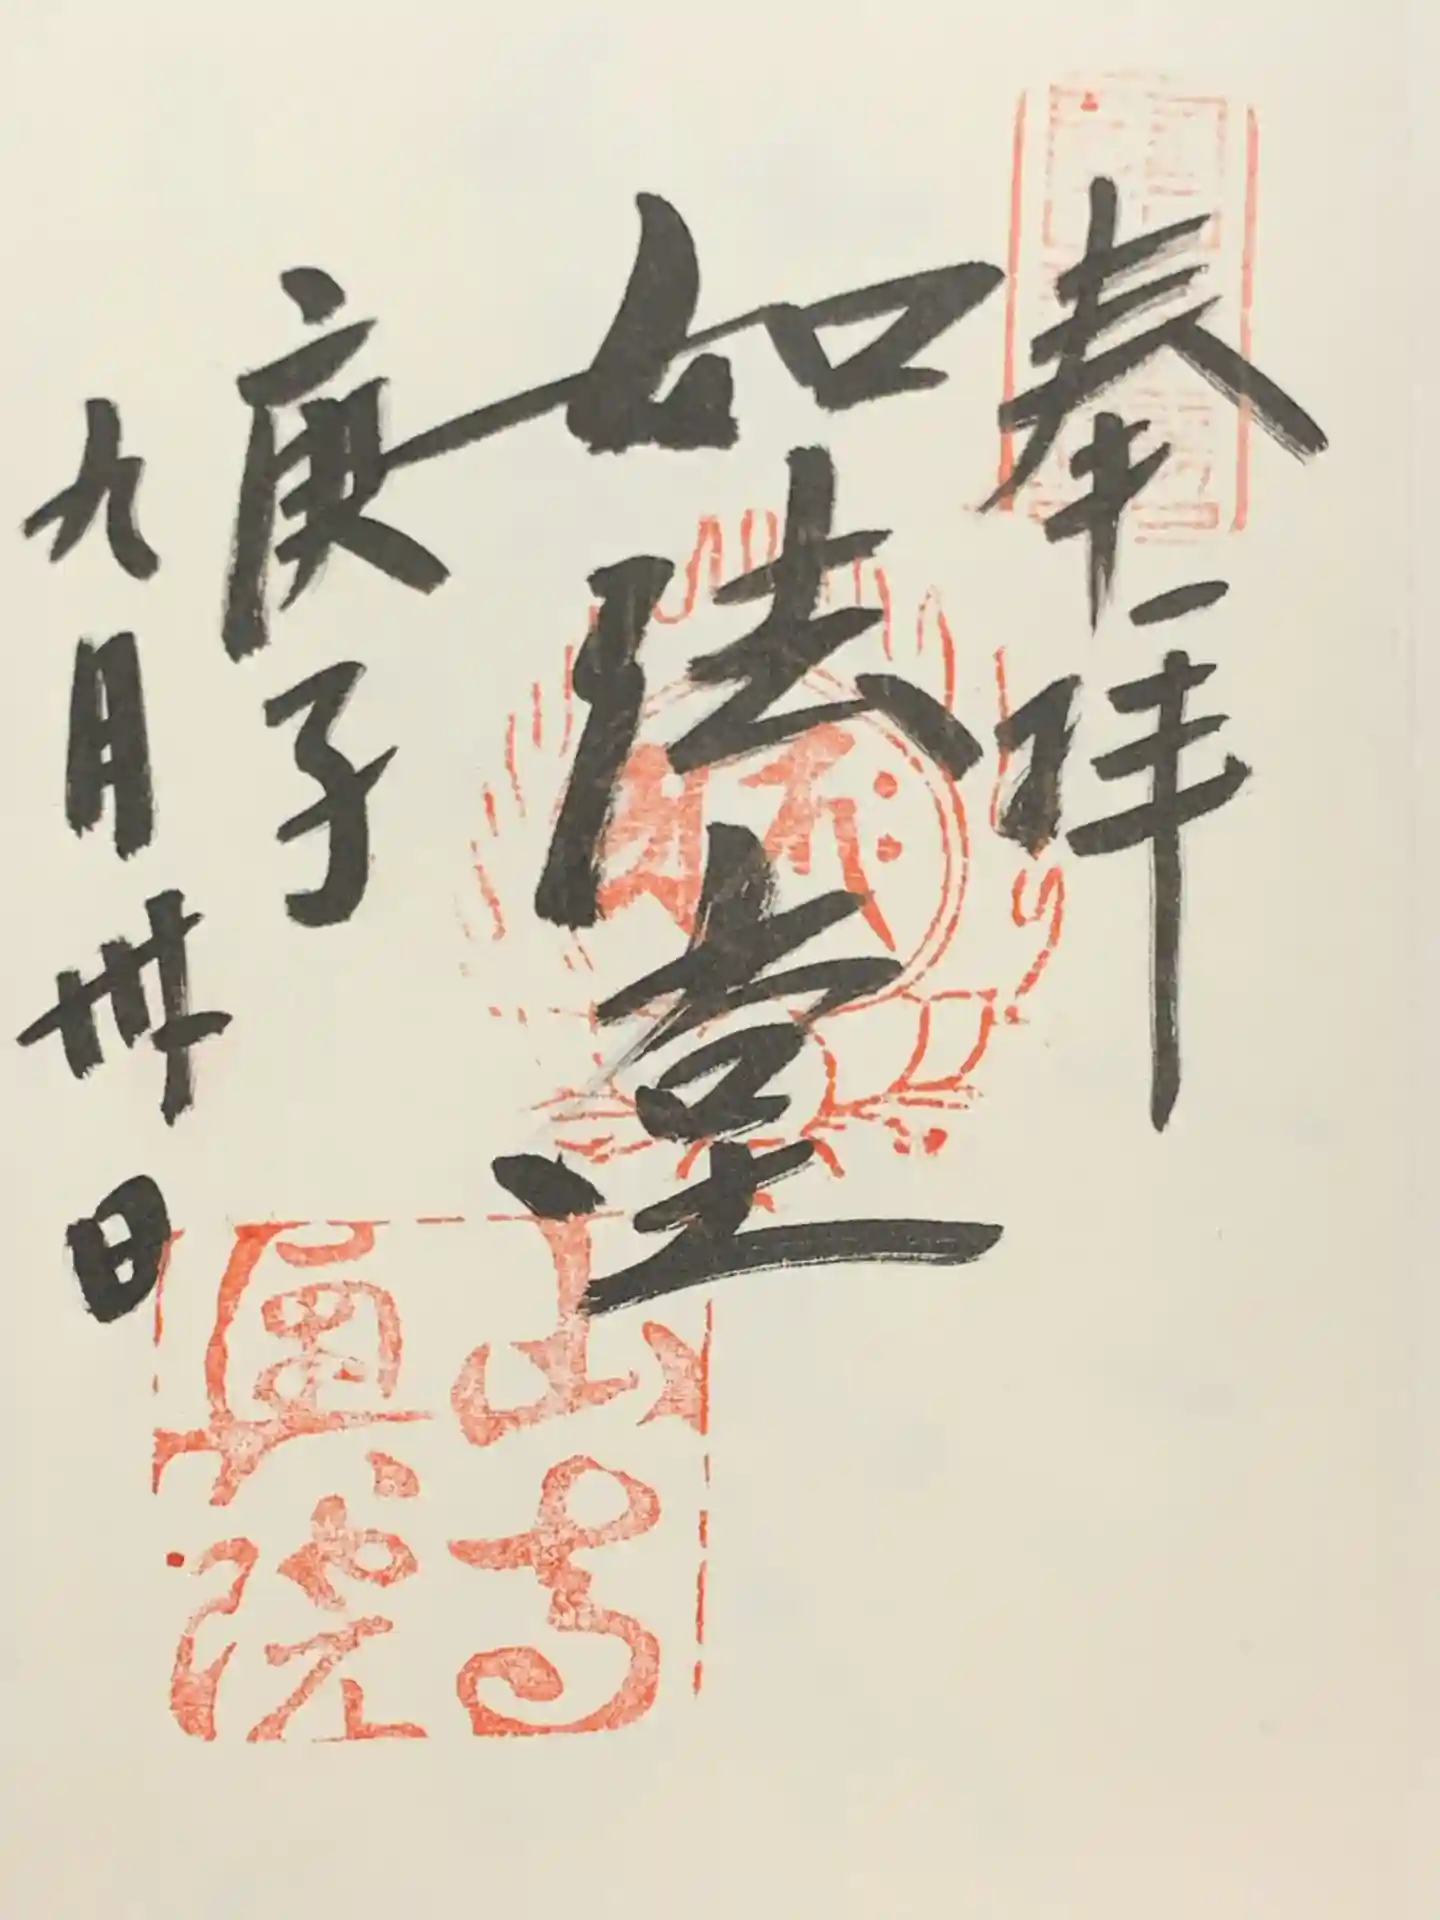 奉拝
如法堂
庚子
九月卅日
山寺
圓院